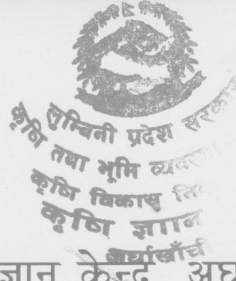 लुम्बिनी प्रदेश सरकार
कृषि तथा भूमि
कृषि विकास
कृषि ज्ञान
अर्घाखाँची
ज्ञान केन्द्र